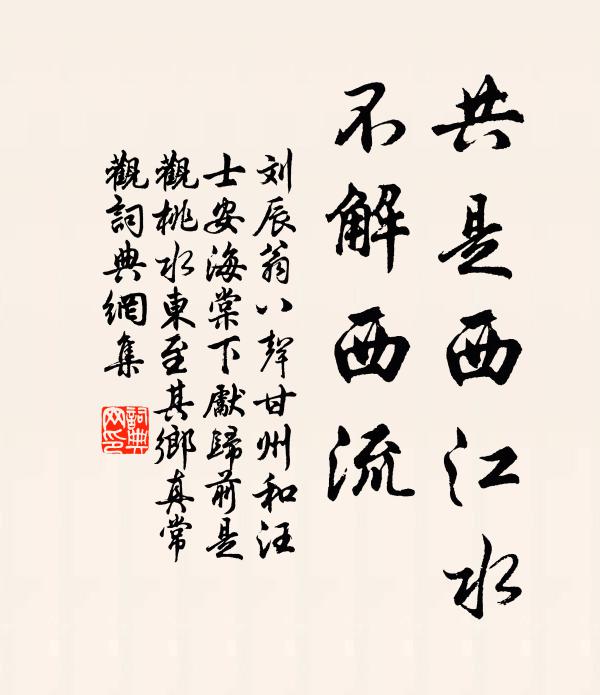 共是西江水
不解西流
刘辰翁八聲甘州和汪
士安海棠下獻歸前是
觀桃水東至其鄉真常
觀詞典網集
詞典
网印